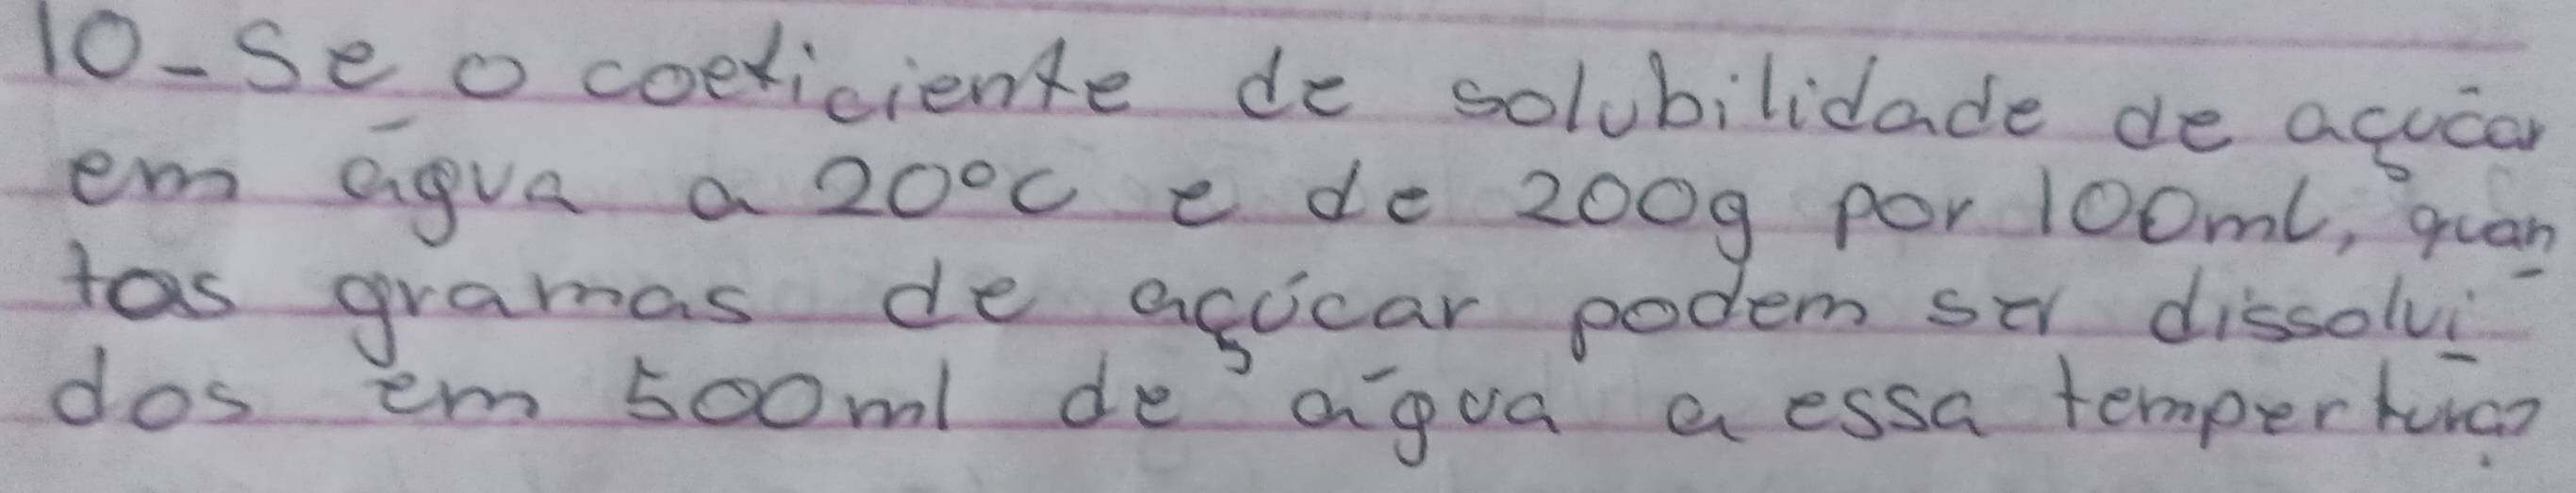 10-Se o coeficiente de solubilidade de açúcar
em água a 20°C e de 200g por 100mL, quan
tas gramas de açúcar podem ser dissolvi
dos em 500ml de água a essa tempertura?